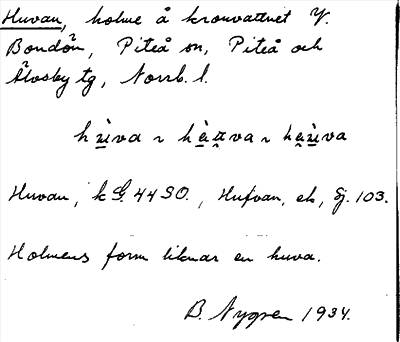 Huvan, holme å kronvattnet V.
Bondön, Piteå sn, Piteå och
Älvsby tg, Norrb. l.
Huvan, k G. 44 SO., Hufvan, ek, Sj. 103.
Holmens form liknar en huva.
B. Nygren 1934.